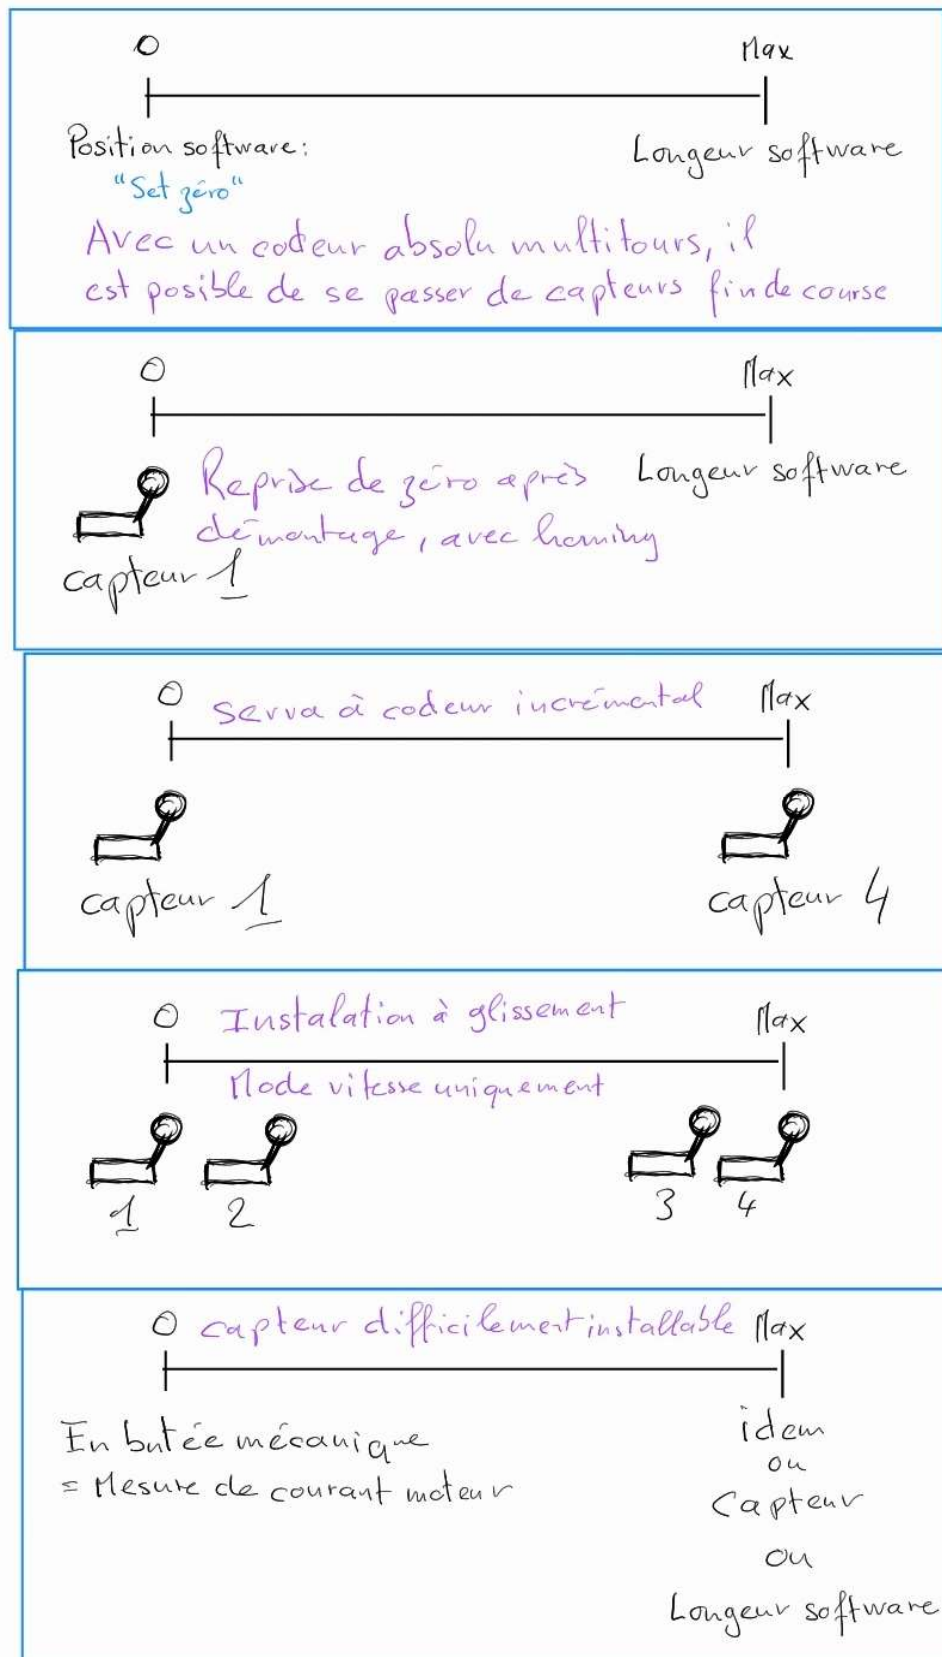 0 Max
Position software: Longeur software
"Set zéro"
Avec un codeur absolu multitours, il
est posible de se passer de capteurs fin de course
0 Max
Reprise de zéro après Longeur software
démontage, avec homing
capteur 1
0 Servo à codeur incrémental Max
capteur 1 capteur 4
0 Instalation à glissement Max
Mode vitesse uniquement
1 2 3 4
0 capteur difficilement installable Max
En butée mécanique idem
= Mesure de courant moteur ou
Capteur
ou
Longeur software